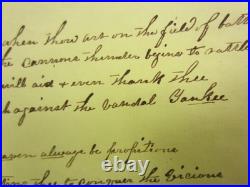 when thou art on the field of batt
e cannons thunder begins to rattl
will aid & even thank thee
against the vandal Yankee
aven always be propitious
thee to conquer the vicious